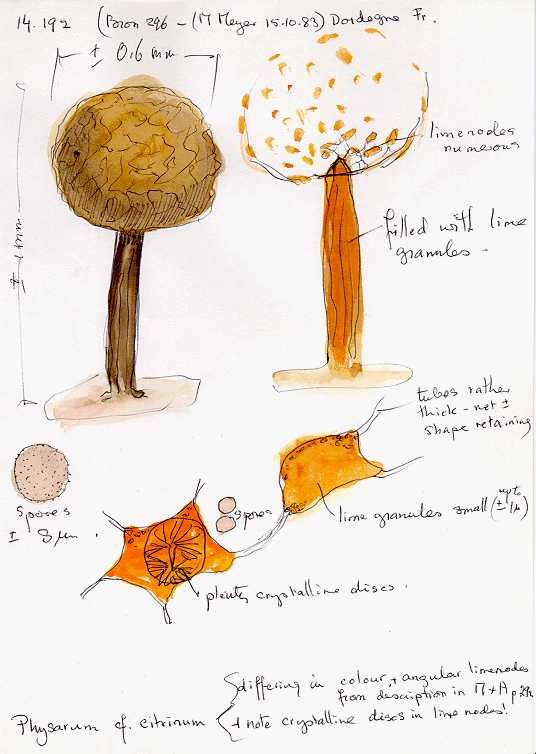 14.192 (Boron 296 - (M Meyer 15.10.83) Dordogne Fr.
± 0.6 mm
± 1.4 mm
limenodes
numerous
filled with lime
granules -
tubes rather
thick - net ±
shape retaining
spores
± 8 µm .
spores
lime granules small (up to ± 1µ)
plenty crystalline discs .
Physarum cf. citrinum
differing in colour, + angular limenodes
from description in M+A p 291
+ note crystalline discs in lime nodes!